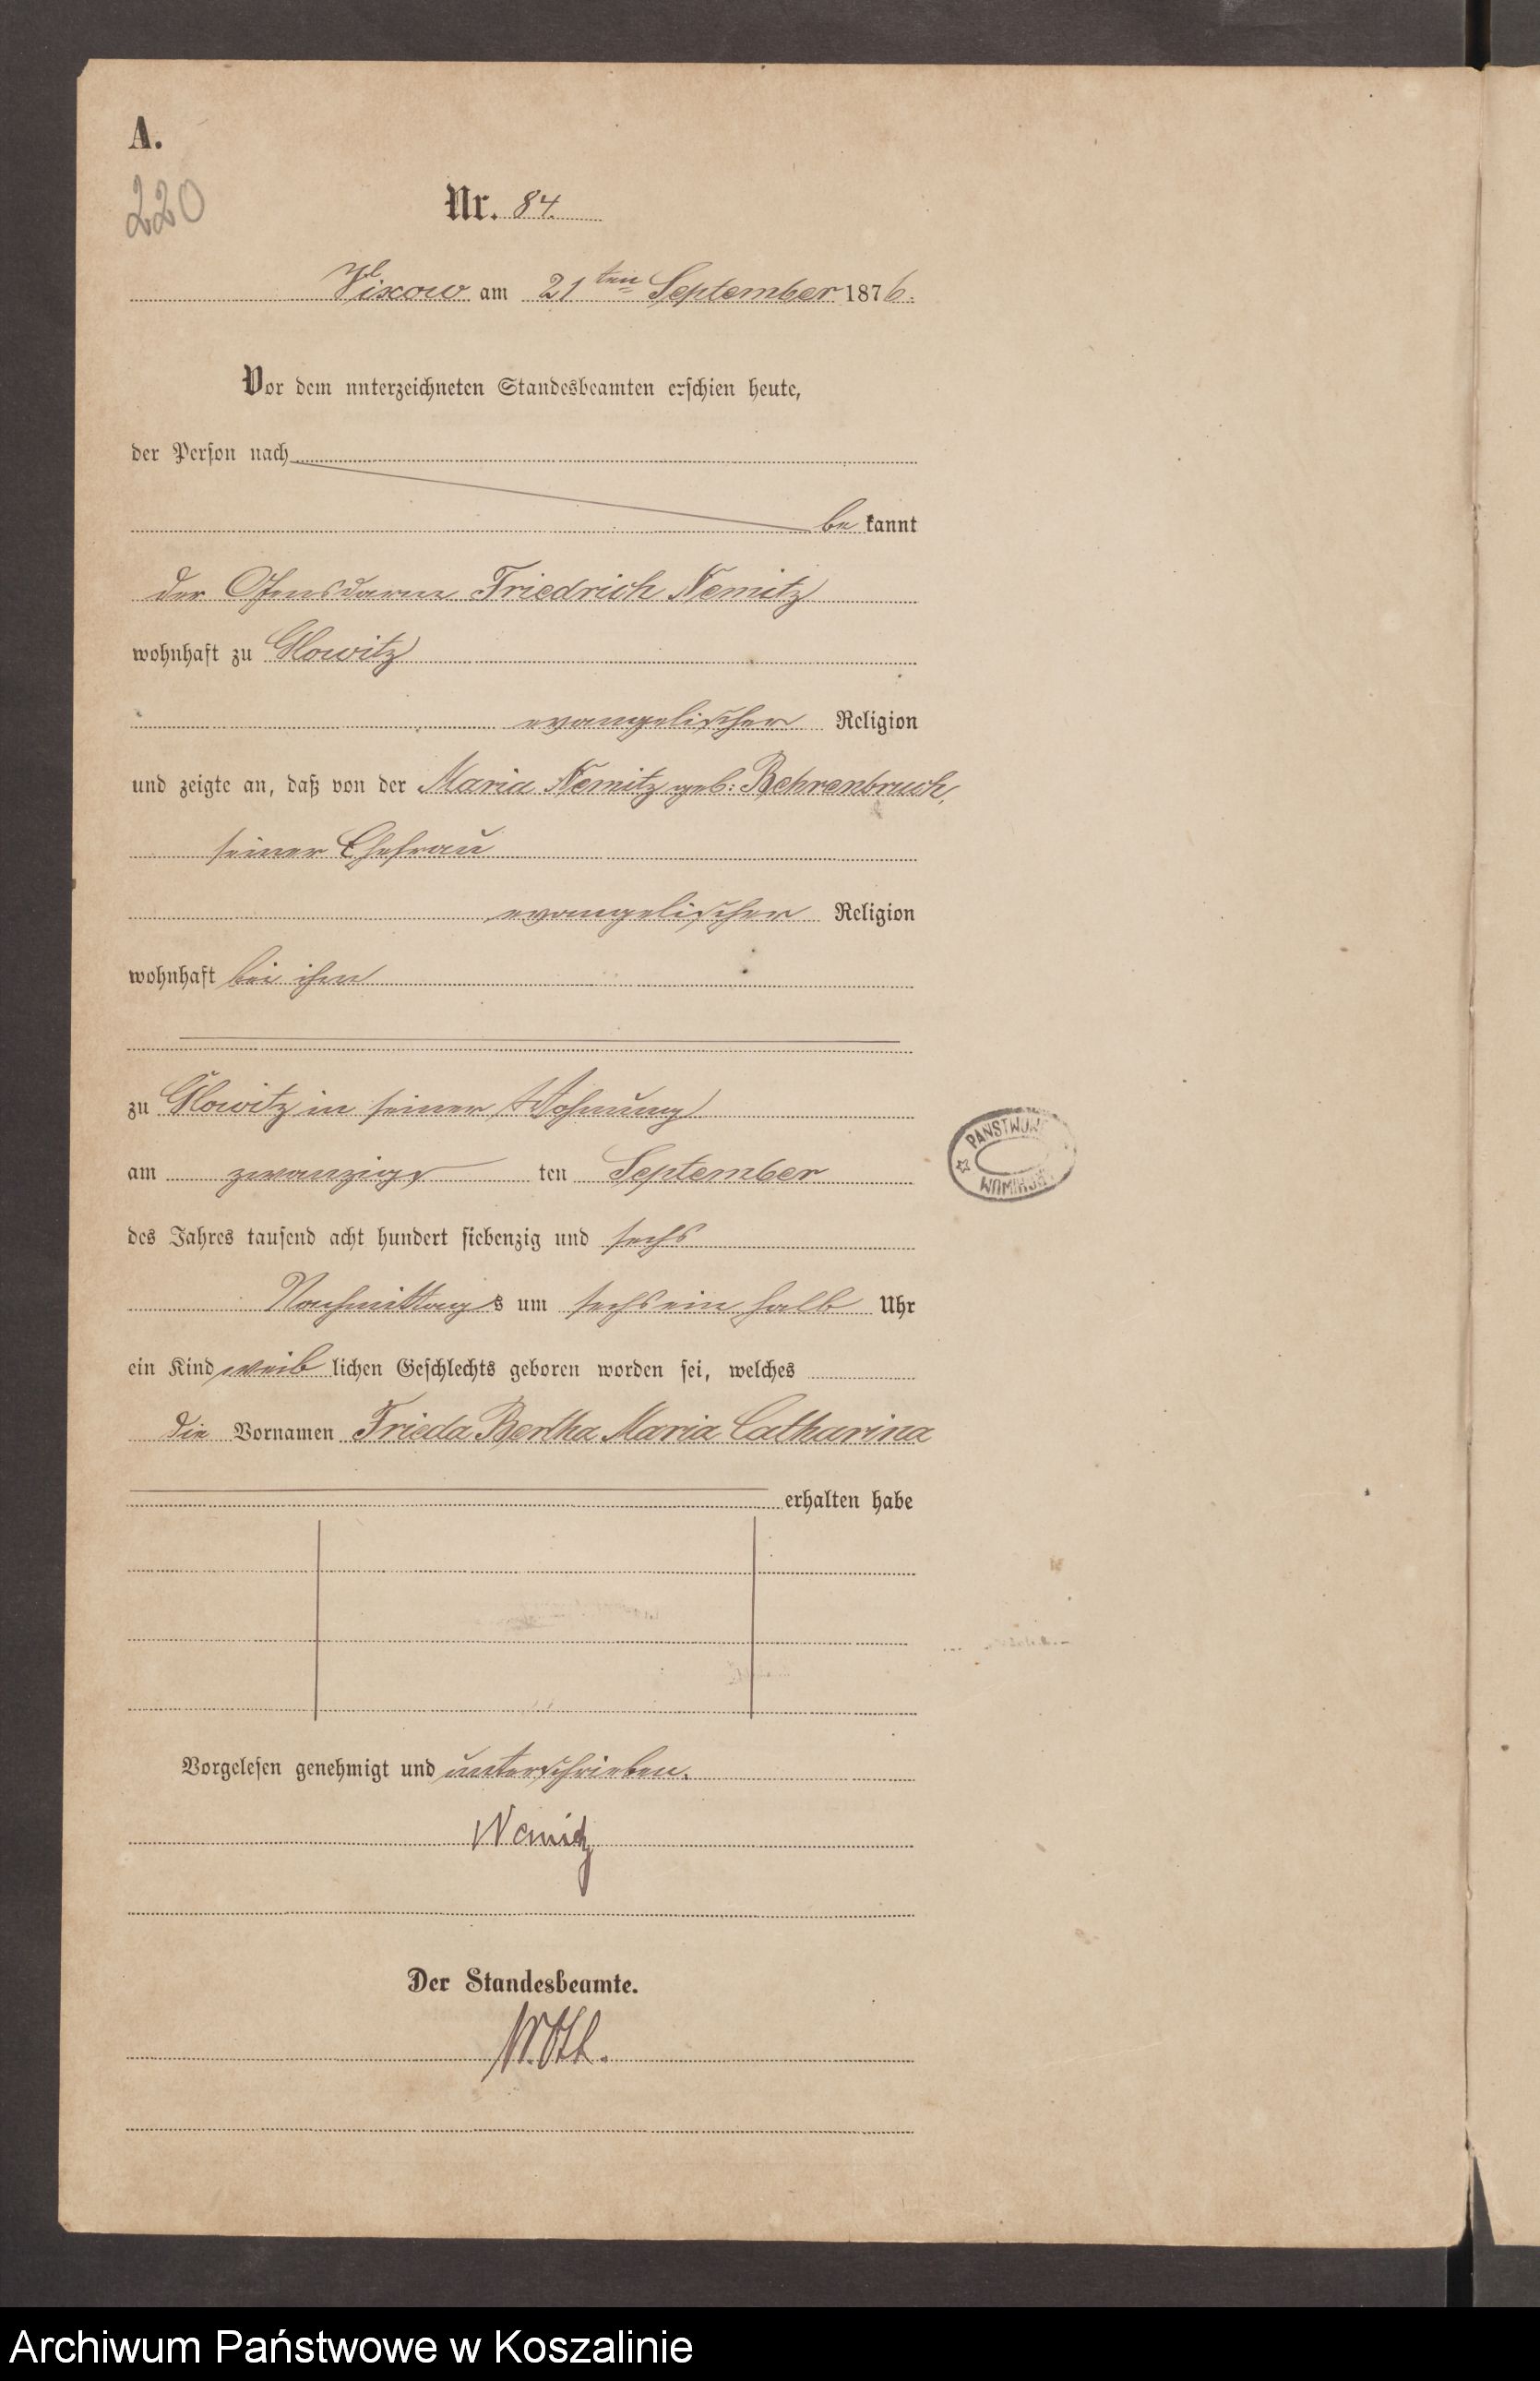 A.
220
Nr. 84.
Vixow am 21ten September 1876.
Vor dem unterzeichneten Standesbeamten erschien heute,
der Person nach
be kannt
der Friedrich Nemitz
wohnhaft zu Glowitz
evangelischer Religion
und zeigte an, daß von der Maria Nemitz geb: Behrenbruch,
seiner Ehefrau
evangelischer Religion
wohnhaft bei ihm
zu Glowitz in seiner Wohnung
am zwanzigs ten September
des Jahres tausend acht hundert siebenzig und sechs
Nachmittag s um sechs ein halb Uhr
ein Kind weib lichen Geschlechts geboren worden sei, welches
die Vornamen Frieda Bertha Maria Catharina
erhalten habe
Vorgelesen genehmigt und unterschrieben.
Nemitz
Der Standesbeamte.
Archiwum Państwowe w Koszalinie